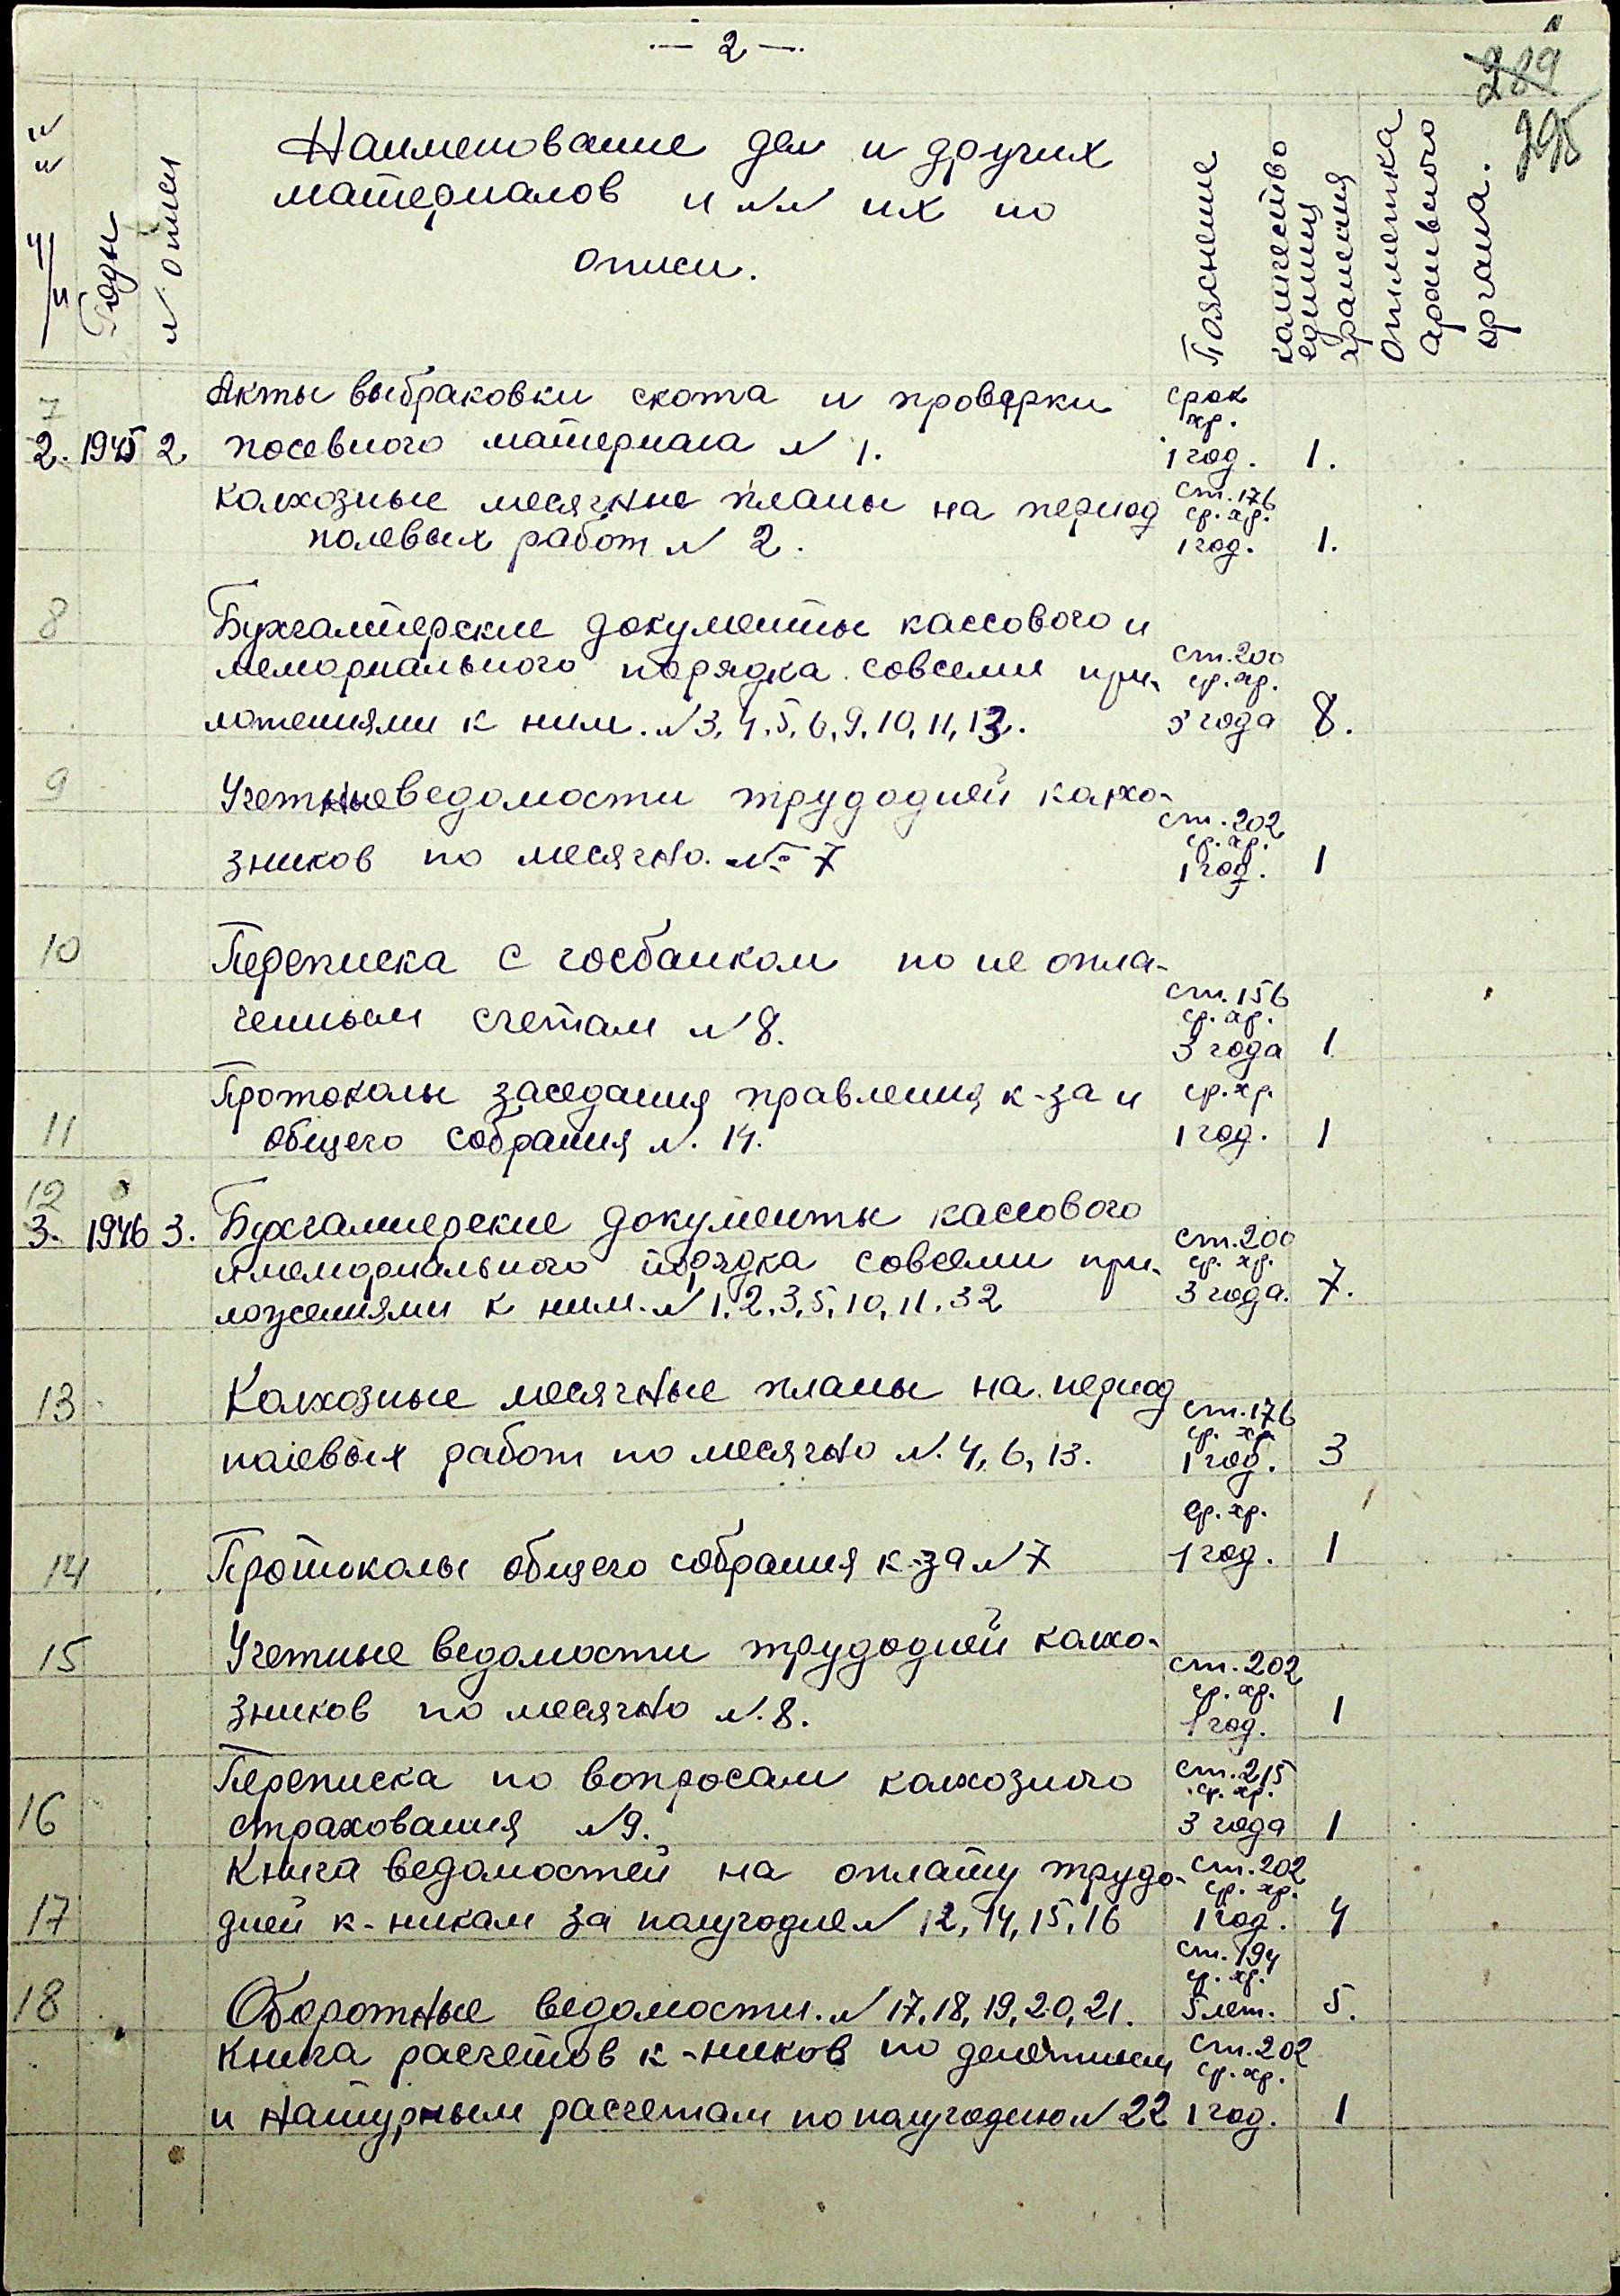 — 2 —.
289
295
№№ п/п
Годы
№ описи
Наименование дел и других
материалов и №№ их по
описи.
Пояснение
количество
единиц
хранения
Отметка
архивного
органа.
Акты выбраковки скота и проверки срок хр.
7
2. 1945 2 посевного материала № 1. 1 год. 1.
колхозные месячные планы на период ст. 176 ср. хр.
полевых работ № 2. 1 год. 1.
8 Бухгалтерские документы кассового и
мемориального порядка совсеми при- ст. 200 ср. хр.
ложениями к ним. № 3, 4, 5, 6, 9, 10, 11, 13. 3 года 8.
9 Учетные ведомости трудодней колхо-
ст. 202 ср. хр.
зников по месячно. № 7 1 год. 1
10 Переписка с госбанком по не опла-
ст. 156 ср. хр.
ченным счетам № 8. 3 года 1
Протоколы заседания правления к-за и ср. хр.
11 общего собрания №. 14. 1 год. 1
12
3. 1946 3. Бухгалтерские документы кассового
ст. 200
имемориального порядка совсеми при- ср. хр.
ложениями к ним. № 1, 2, 3, 5, 10, 11, 32 3 года. 7.
13 Колхозные месячные планы на период
ст. 176 ср. хр.
полевых работ по месячно №. 4, 6, 13. 1 год. 3
ср. хр.
14 Протоколы общего собрания к-за № 7 1 год. 1
15 Учетные ведомости трудодней колхо-
ст. 202 ср. хр.
зников по месячно №. 8. 1 год. 1
Переписка по вопросам колхозного ст. 215 ср. хр.
16 страхования № 9. 3 года 1
Книга ведомостей на оплату трудо- ст. 202 ср. хр.
17 дней к-никам за полугодие № 12, 14, 15, 16 1 год. 4
ст. 194 ср. хр.
18 Оборотные ведомости. № 17, 18, 19, 20, 21. 5 лет. 5.
Книга расчетов к-ников по денежным ст. 202 ср. хр.
и натурным расчетам по полугодию № 22 1 год. 1